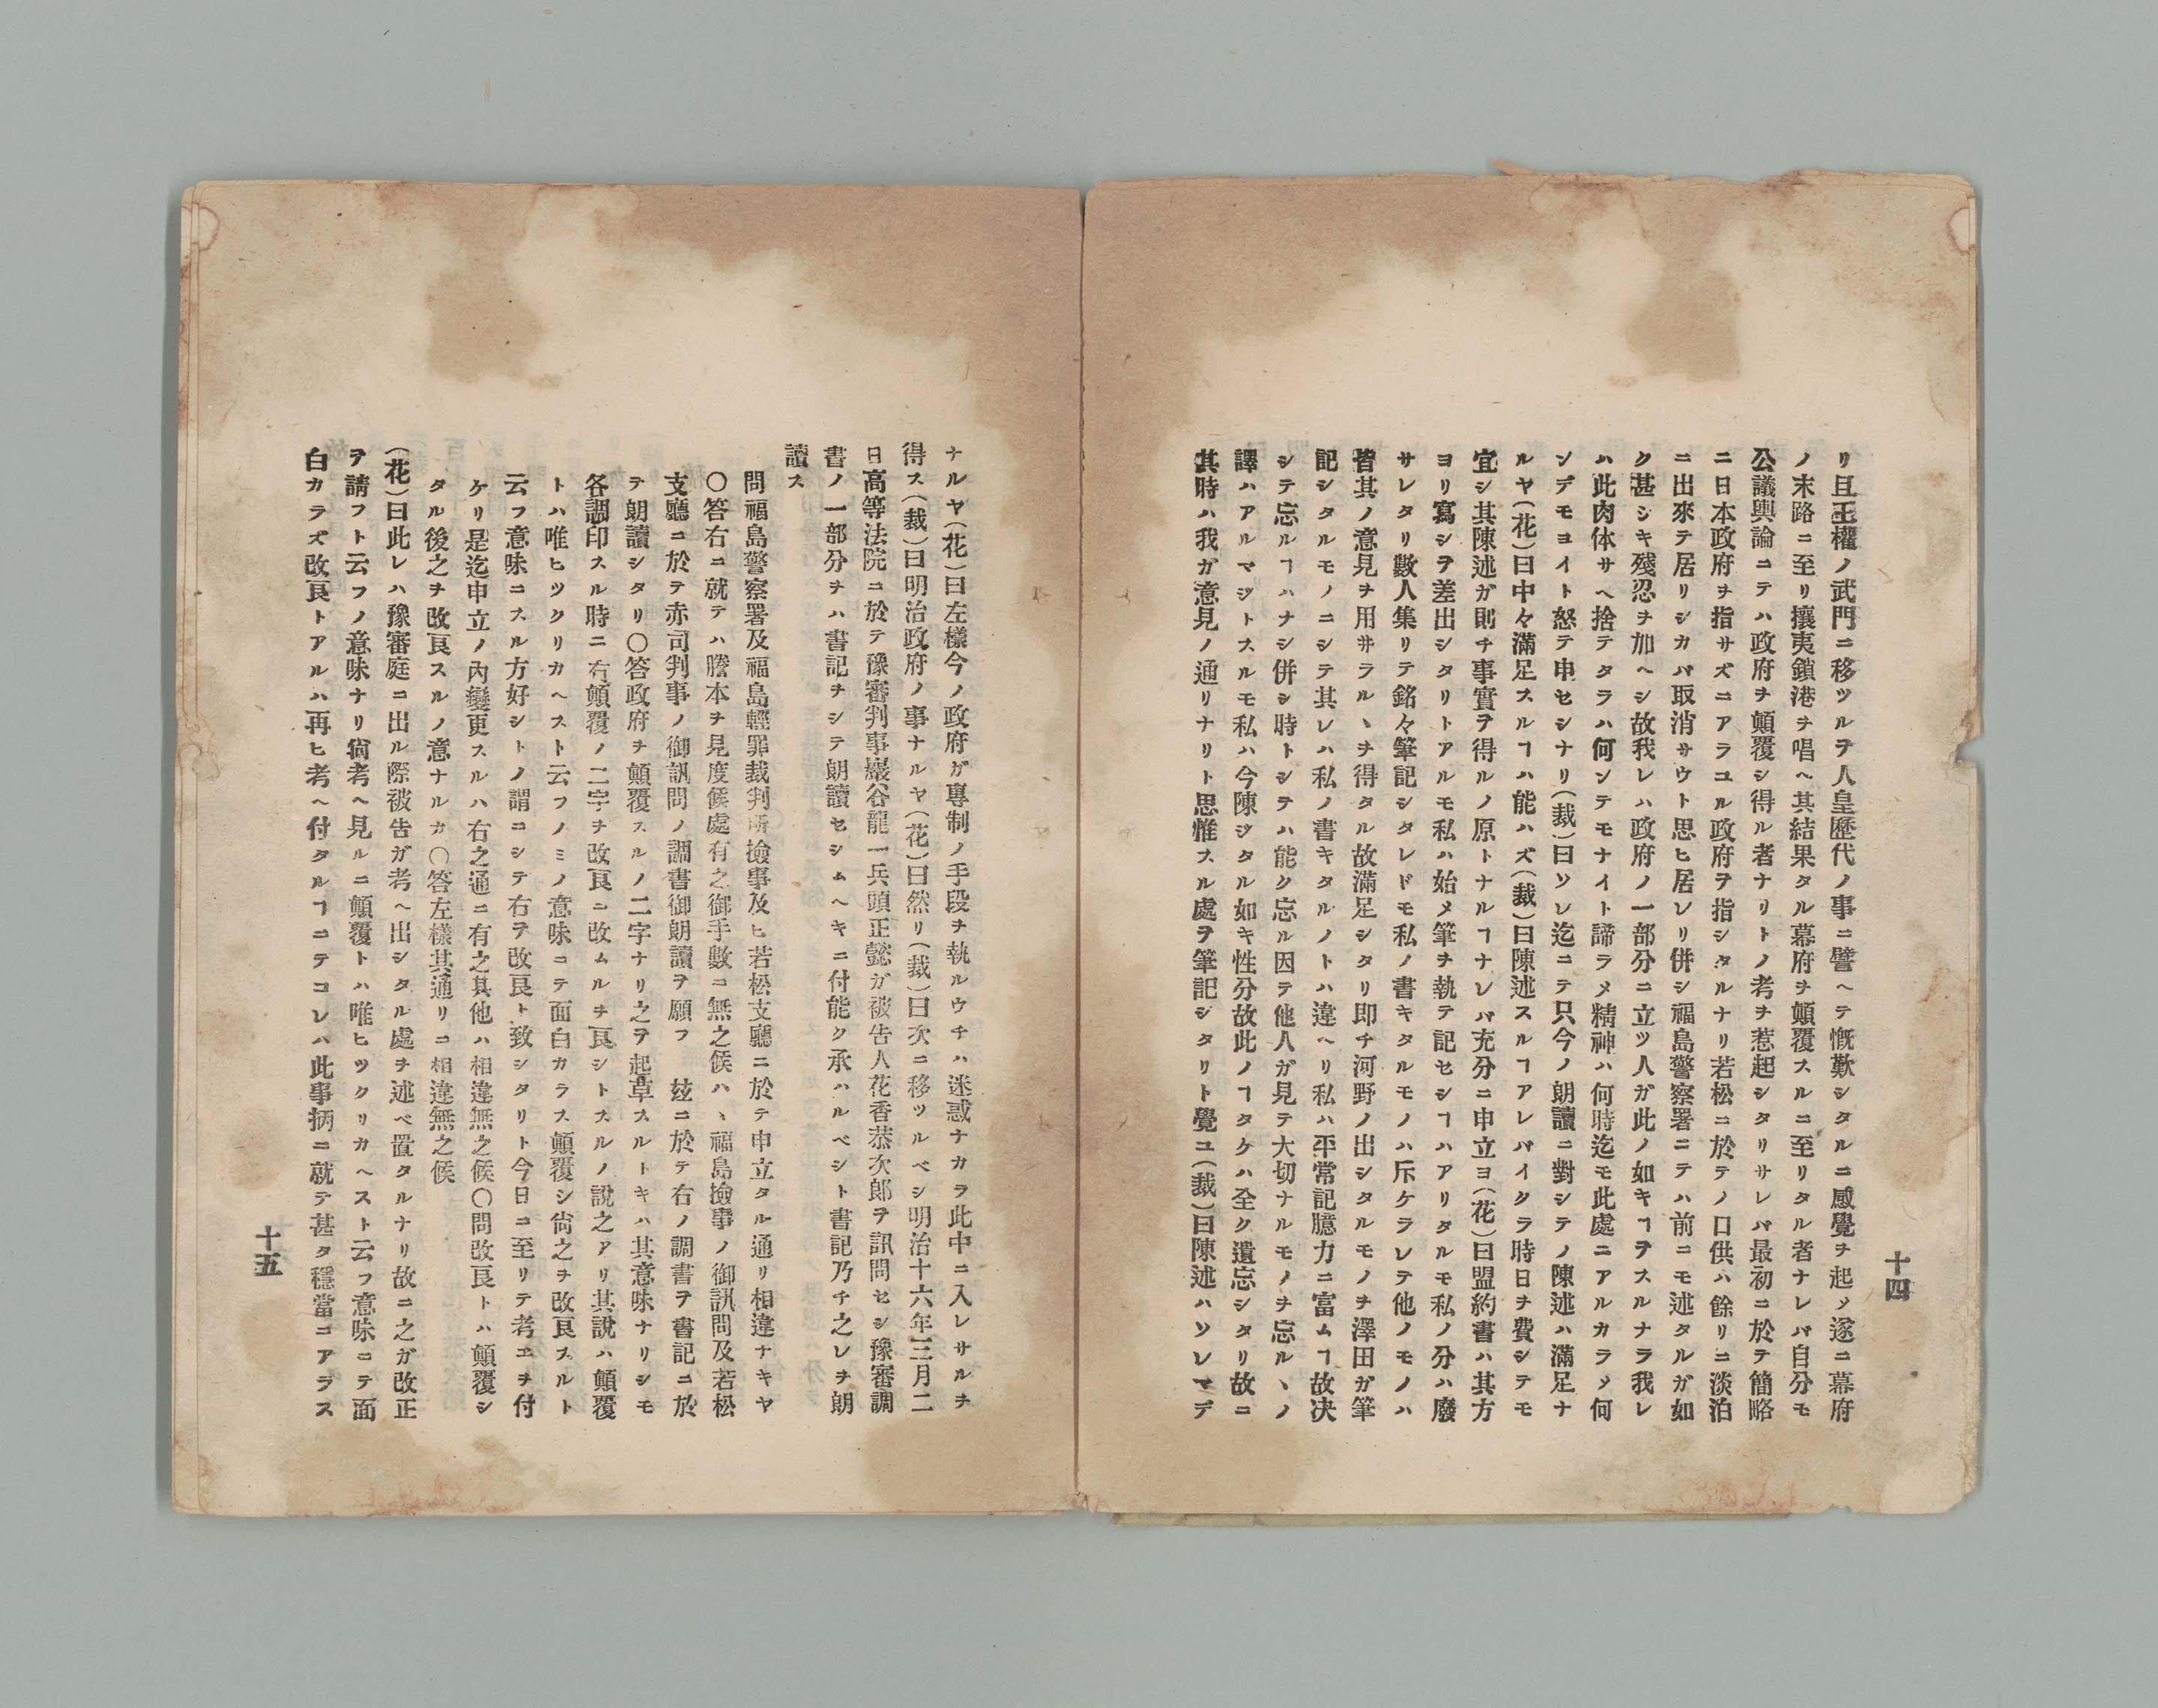 十四
リ且王權ノ武門ニ移ツルヲ人皇歷代ノ事ニ譬ヘテ慨歎シタルニ感覺ヲ起メ遂ニ幕府
ノ末路ニ至リ攘夷鎖港ヲ唱ヘ其結果タル幕府ヲ顛覆スルニ至リタル者ナレバ自分モ
公議輿論ニテハ政府ヲ顛覆シ得ル者ナリトノ考ヲ惹起シタリサレバ最初ニ於テ簡略
ニ日本政府ヲ指サズニアラユル政府ヲ指シタルナリ若松ニ於テノ口供ハ餘リニ淡泊
ニ出來テ居リシカバ取消サウト思ヒ居レリ併シ福島警察署ニテハ前ニモ述タルガ如
ク甚シキ殘忍ヲ加ヘシ故我レハ政府ノ一部分ニ立ツ人ガ此ノ如キヿヲスルナラ我レ
ハ此肉体サヘ捨テタラハ何ンテモナイト諦ラメ精神ハ何時迄モ此處ニアルカラメ何
ンデモヨイト怒テ申セシナリ(裁)曰ソレ迄ニテ只今ノ朗讀ニ對シテノ陳述ハ滿足ナ
ルヤ(花)曰中々滿足スルヿハ能ハズ(裁)曰陳述スルヿアレバイクラ時日ヲ費シテモ
宜シ其陳述ガ則チ事實ヲ得ルノ原トナルヿナレバ充分ニ申立ヨ(花)曰盟約書ハ其方
ヨリ寫シヲ差出シタリトアルモ私ハ始メ筆ヲ執テ記セシヿハアリタルモ私ノ分ハ廢
サレタリ數人集リテ銘々筆記シタレドモ私ノ書キタルモノハ斥ケラレテ他ノモノハ
皆其ノ意見ヲ用サラルヽヲ得タル故滿足シタリ即チ河野ノ出シタルモノヲ澤田ガ筆
記シタルモノニシテ其レハ私ノ書キタルノトハ違ヘリ私ハ平常記臆力ニ富ムヿ故决
シテ忘ルヿハナシ併シ時トシテハ能ク忘ル因テ他人ガ見テ大切ナルモノヲ忘ルヽノ
譯ハアルマジトスルモ私ハ今陳ジタル如キ性分故此ノヿタケハ全ク遺忘シタリ故ニ
其時ハ我ガ意見ノ通リナリト思惟スル處ヲ筆記シタリト覺ユ(裁)曰陳述ハソレマデ
ナルヤ(花)曰左樣今ノ政府ガ專制ノ手段ヲ執ルウチハ迷惑ナカラ此中ニ入レサルヲ
得ス(裁)曰明治政府ノ事ナルヤ(花)曰然リ(裁)曰次ニ移ツルベシ明治十六年三月二
日高等法院ニ於テ豫審判事巖谷龍一兵頭正懿ガ被告人花香恭次郎ヲ訊問セシ豫審調
書ノ一部分ヲハ書記ヲシテ朗讀セシムヘキニ付能ク承ハルベシト書記乃チ之レヲ朗
讀ス
問福島警察署及福島輕罪裁判所撿事及ヒ若松支廳ニ於テ申立タル通リ相違ナキヤ
〇答右ニ就テハ謄本ヲ見度候處有之御手數ニ無之候ハヽ福島撿事ノ御訊問及若松
支廳ニ於テ赤司判事ノ御訊問ノ調書御朗讀ヲ願フ　玆ニ於テ右ノ調書ヲ書記ニ於
テ朗讀シタリ〇答政府ヲ顛覆スルノ二字ナリ之ヲ起草スルトキハ其意味ナリシモ
各調印スル時ニ右顛覆ノ二字ヲ改良ニ改ムルヲ良シトスルノ說之アリ其說ハ顛覆
トハ唯ヒツクリカヘスト云フノミノ意味ニテ面白カラス顛覆シ尙之ヲ改良スルト
云フ意味ニスル方好シトノ謂ニシテ右ヲ改良ト致シタリト今日ニ至リテ考ヱヲ付
ケリ是迄申立ノ內變更スルハ右之通ニ有之其他ハ相違無之候〇問改良トハ顛覆シ
タル後之ヲ改良スルノ意ナルカ〇答左樣其通リニ相違無之候
(花)曰此レハ豫審庭ニ出ル際被告ガ考ヘ出シタル處ヲ述ベ置タルナリ故ニ之ガ改正
ヲ請フト云フノ意味ナリ尙考ヘ見ルニ顛覆トハ唯ヒツクリカヘスト云フ意味ニテ面
白カラズ改良トアルハ再ヒ考ヘ付タルヿニテコレハ此事柄ニ就テ甚タ穩當ニアラス
十五